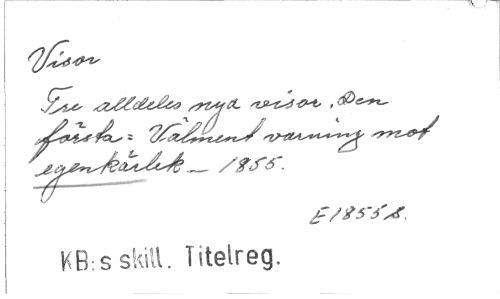 Visor
Tre alldeles nya visor. Den
första: Välment varning mot
egenkärlek _ 1855.
E 1855 s.
KB:s skill. Titelreg.